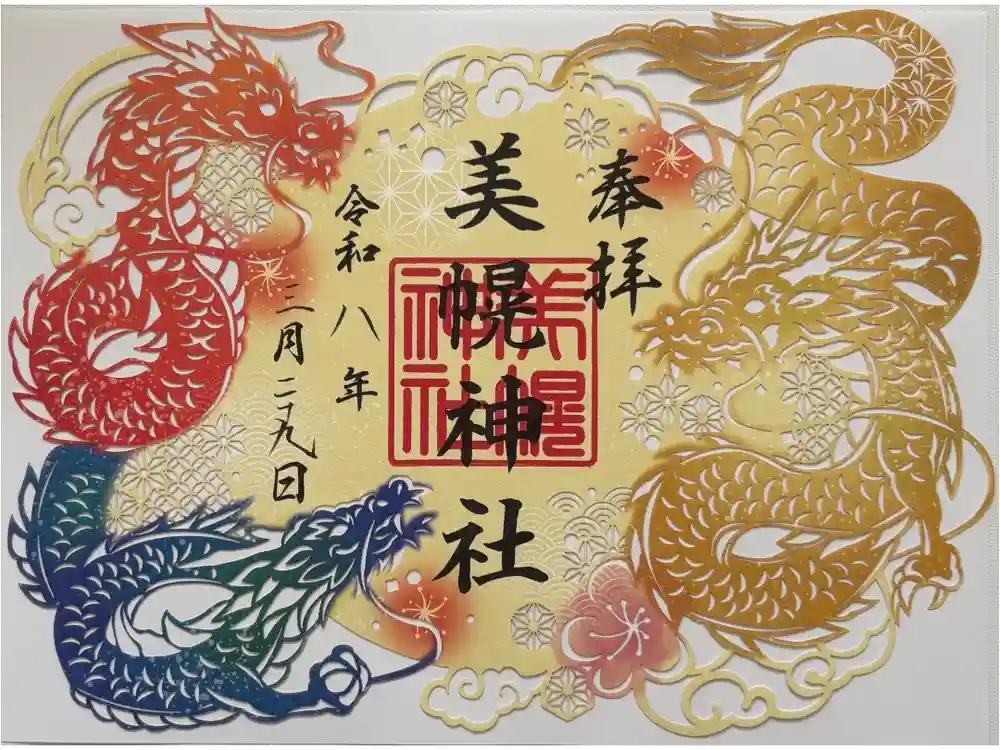 奉拝
美幌神社
美幌
神社
令和八年
三月二九日